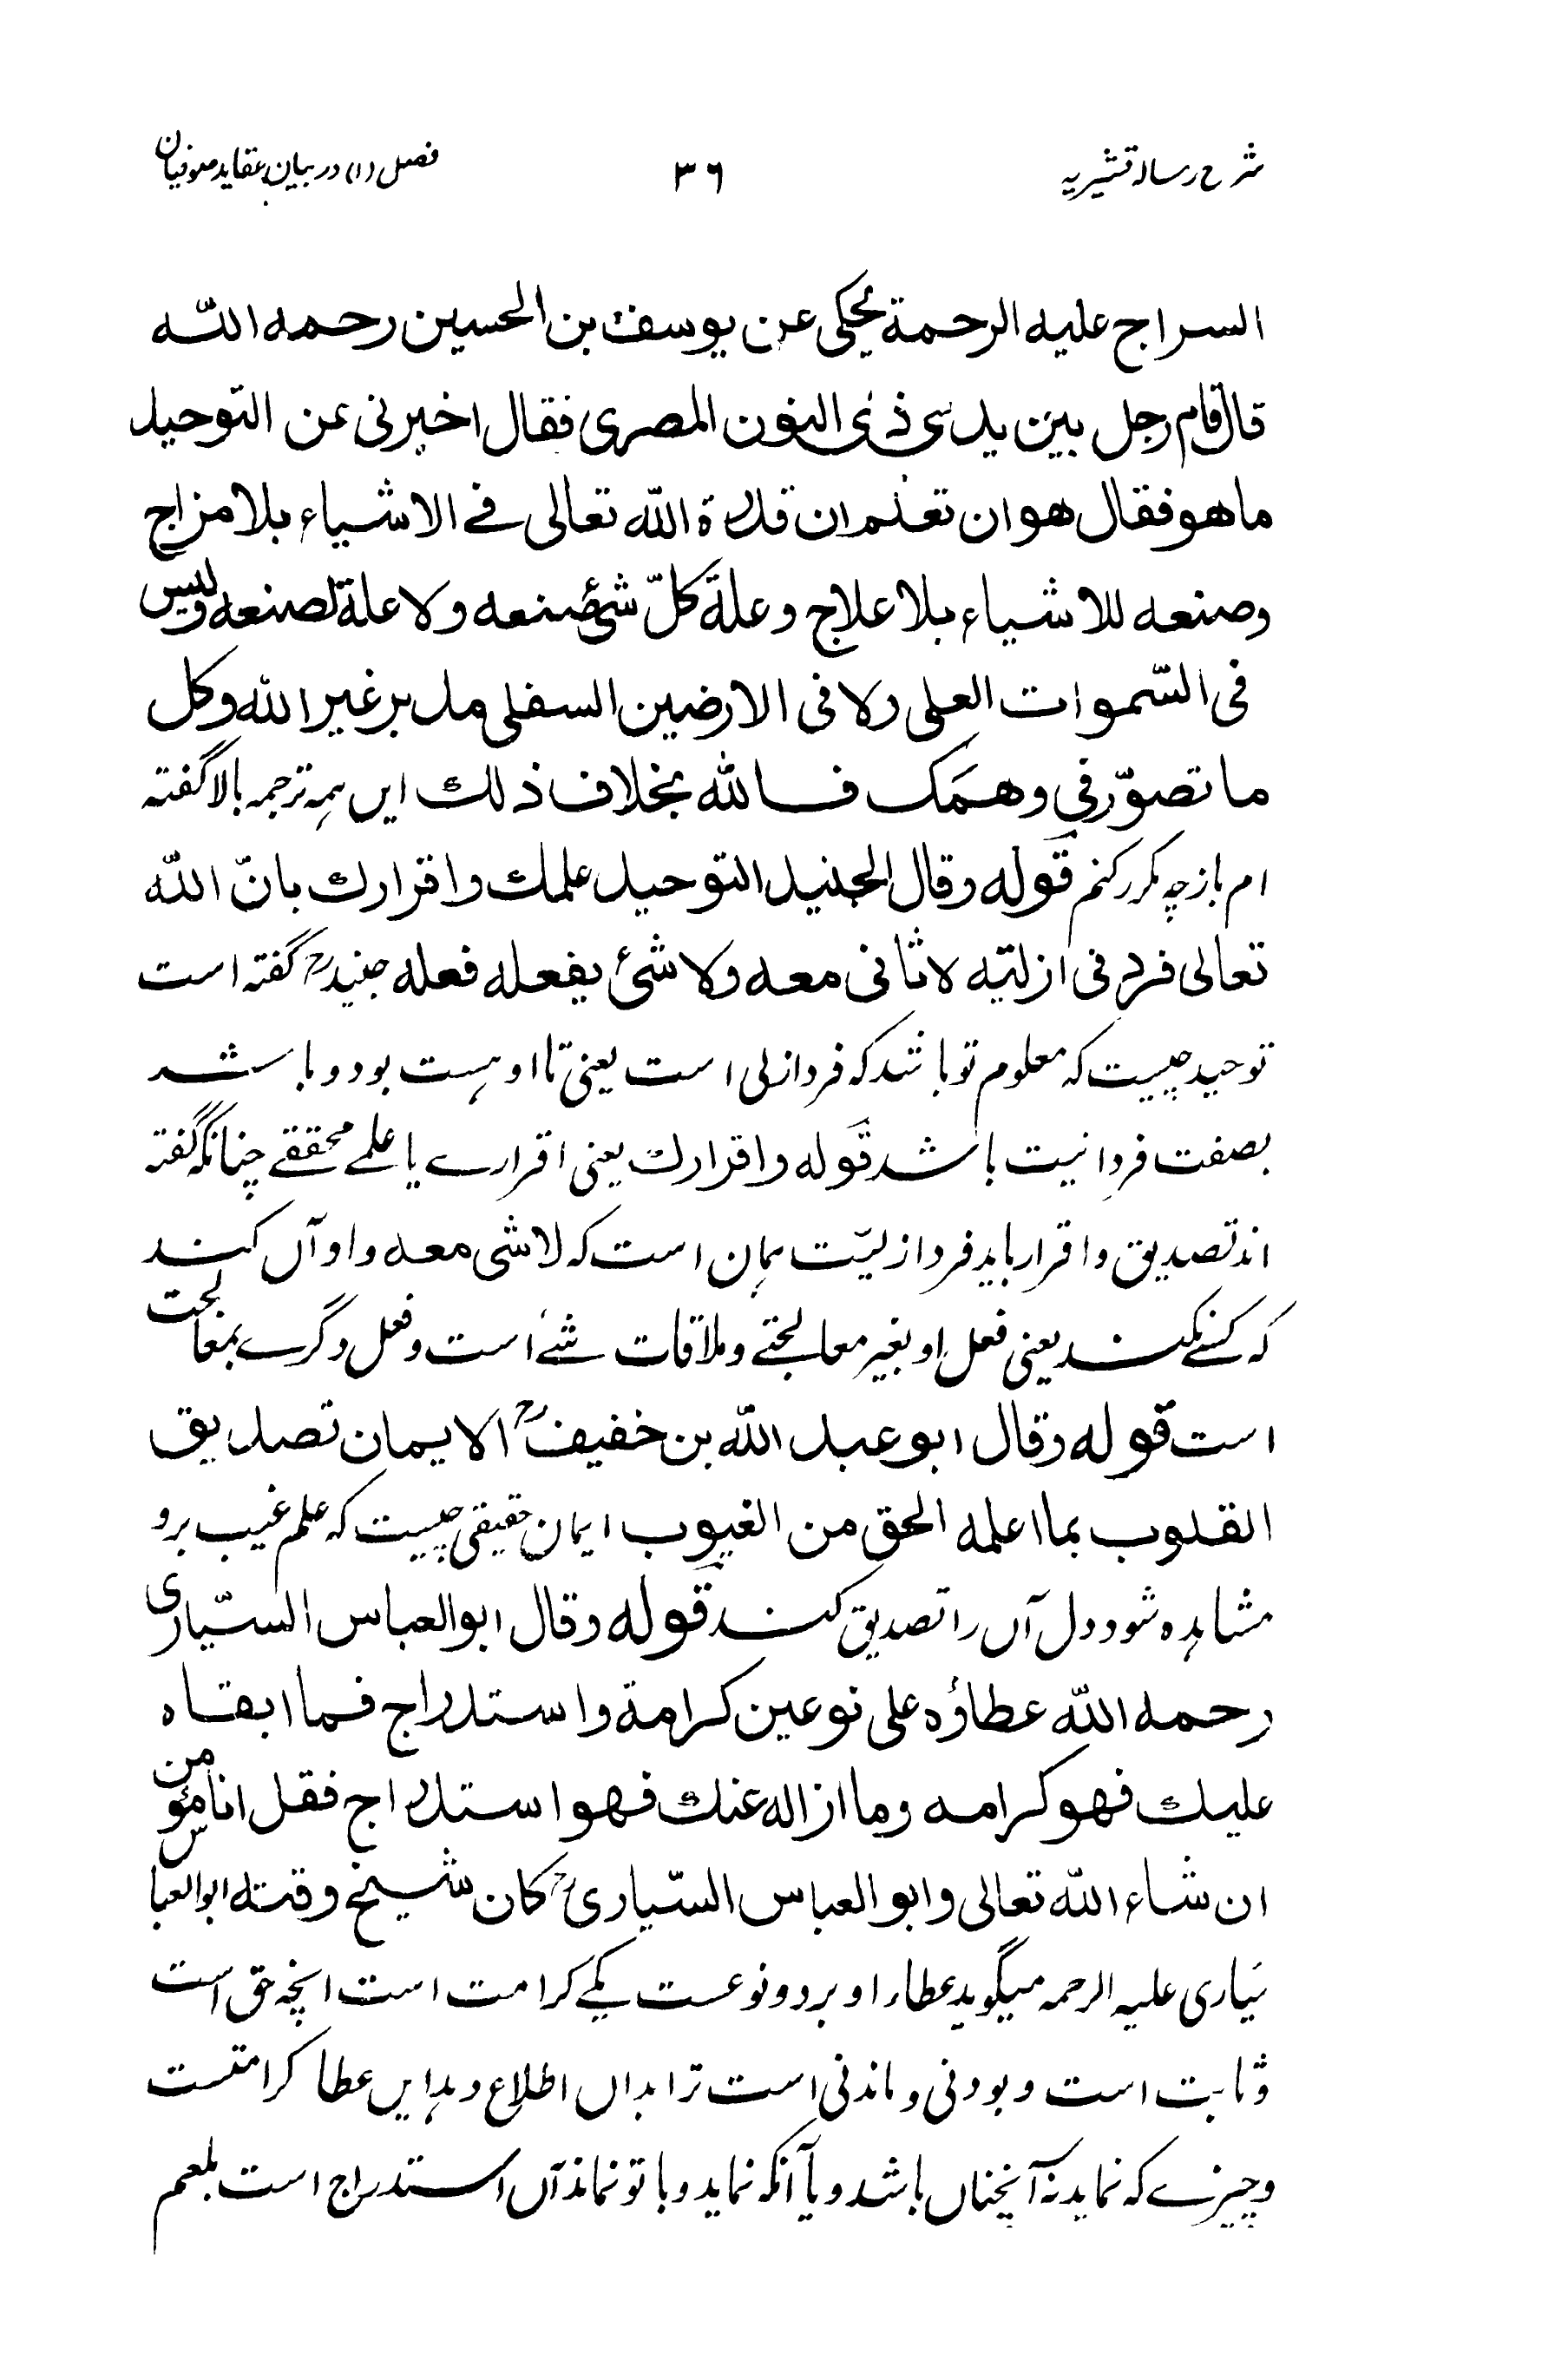 شرح رسالہ قشیریہ ۳۶ فصل (۱) در بیان عقاید صوفیان
السراج عليه الرحمة يحكى عن يوسف بن الحسين رحمه الله
قال قام رجل بين يدى ذى النون المصرى فقال اخبرنى عن التوحيد
ما هو فقال هو ان تعلم ان قدرة الله تعالى فے الاشياء بلا مزاج
وصنعه للاشياء بلا علاج وعلة كلّ شئ صنعه ولا علة لصنعه وليس
فى السّموات العلى ولا فى الارضين السفلى مدبر غير الله وكل
ما تصوّر في وهمك فالله بخلاف ذلك ایں ہمہ ترجمہ بالا گفتہ
ام باز چہ مکرر کنم قوله وقال الجنيد التوحيد علمك واقرارك بانّ الله
تعالى فرد فى ازليته لا ثانى معه ولا شئ يفعل فعله جنیدؒ گفتہ است
توحید چیست کہ معلوم تو باشد کہ فرد ازلی است یعنی تا او ہست بود و باشد
بصفت فردانیت باشد قوله واقرارك یعنی اقرارے یا علمے محققے چنانکہ گفتہ
اند تصدیق و اقرار باید فرد ازلیّت ہمان است کہ لا شی معہ و او آں کند
کہ کسے نکند یعنی فعل او بغیر معالجتے و ملاقات شئے است و فعل دگرے بمعالجت
است قوله وقال ابو عبد الله بن خفيفؒ الايمان تصديق
القلوب بما اعلمه الحق من الغيوب ایمان حقیقی چیست کہ علم غیب برو
مشاہدہ شود دل آں را تصدیق کند قوله وقال ابو العباس السيّارى
رحمه الله عطاؤه على نوعين كرامة واستدراج فما ابقاه
عليك فهو كرامه وما ازاله عنك فهو استدراج فقل انا مؤمن
ان شاء الله تعالى وابو العباس السيّارىؒ كان شيخ وقته ابو العباس
سیاری علیہ الرحمہ میگوید عطاء او بر دو نوعست یکے کرامت است انچہ حق است
و ثابت است و بودنی و ماندنی است ترا بداں اطلاع دہد ایں عطا کرامتست
و چیزے کہ نماید نہ آنچناں باشد و یا آنکہ نماید و با تو نماند آں استدراج است بلعم